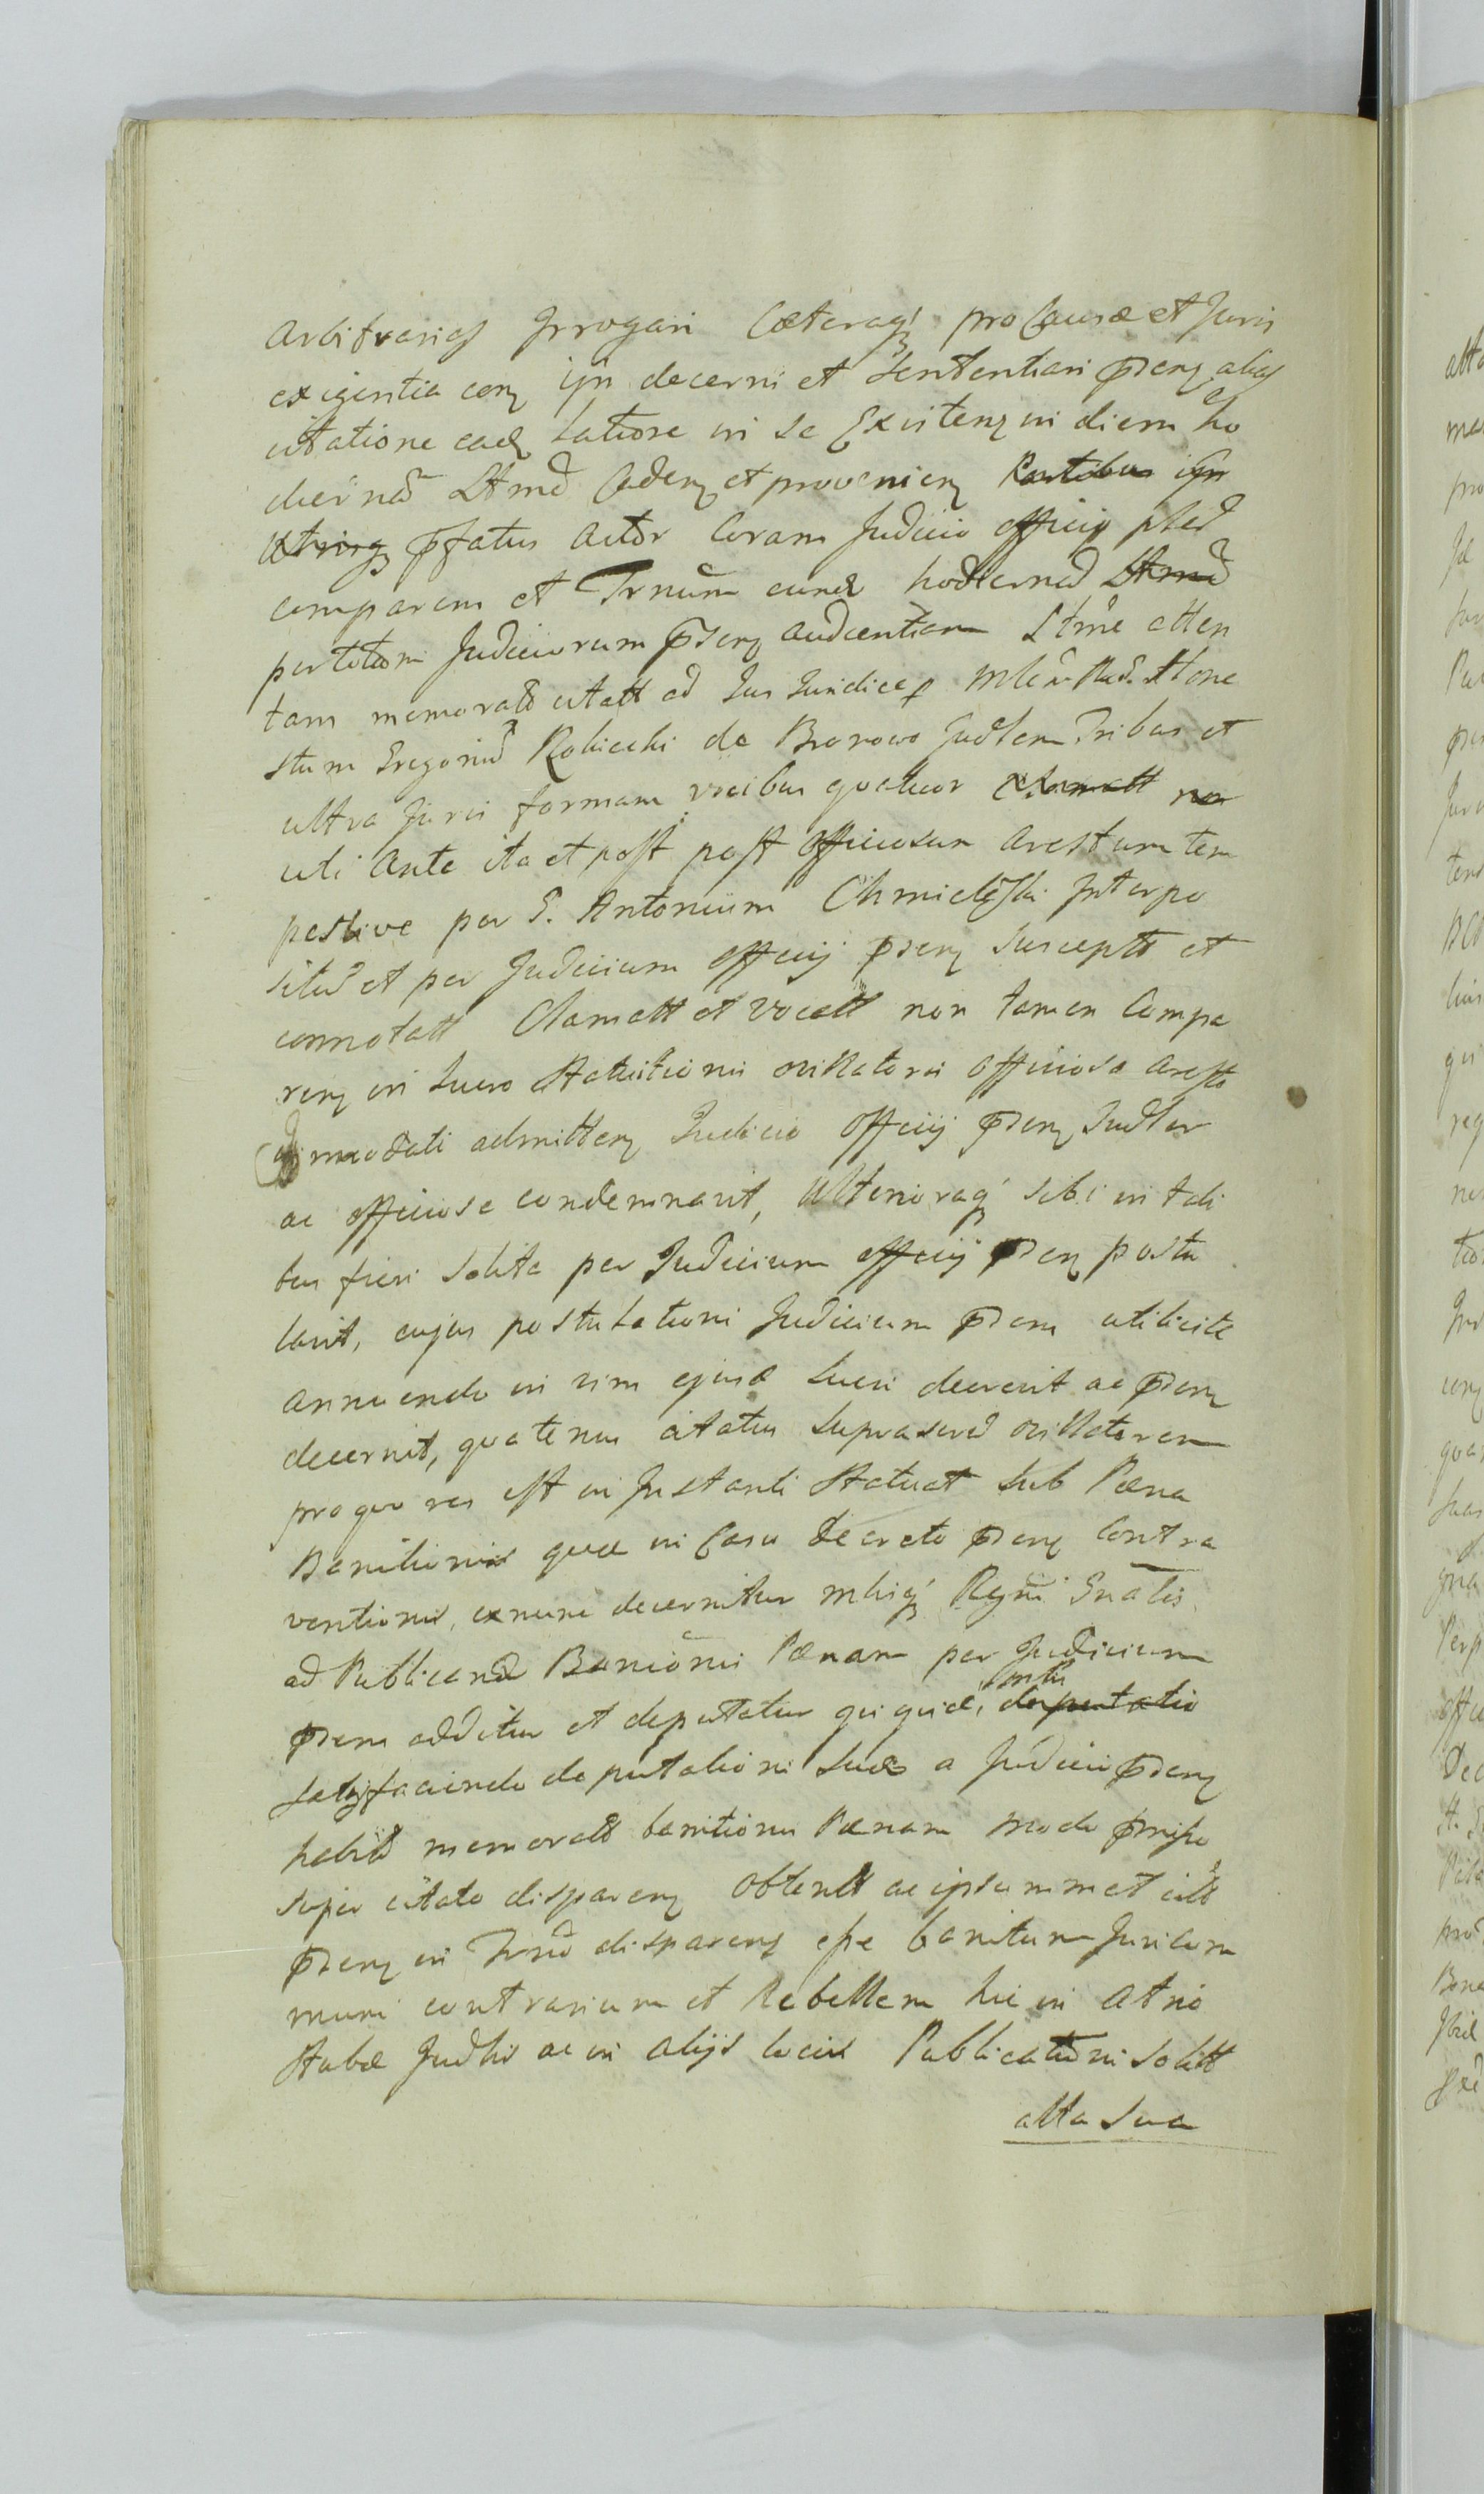 arbitrarias Irrogari Cæteraq pro Causæ et Juris
exigentia conq ijn decerni et Sententiari pnseq alias
citatione eaq Latiore in se Existenq in diem ho
dierna Ltma Cadenq et provenienq Partibus ijn
Utrisq pfatus Actor Coram Judicio officii pled
comparens et Trnum eund hodierna Ltma
per totam Judiciorum pnsenq audientiam Ltme atten
tam memorato citatt ad Jus Juridice Hone
stum Gregoriu Robiecki de Bronowo Judlem Tribus et
ultra Juris formam vicibus quatuor Clamatt non
uti Ante ita et post post Officiosum Arestum tem
pestive per G. Antonium Chmieleski Interpo
situ et per Judicium Officij pnsenq Suscepto et
connotatt Clamatt et Vocatt non tamen Compa
renq in Lucro Statuitionis ovillatoris officiose aresto
modati admittenq Judicio Officij pnsenq Judter
ac officiose condemnavit, Ulterioraq sibi in tali
bus fieri Solita per Judicium officij pnsenq postu
lavit, cujus postulationi Judicium pnsens utilicite
annuendo in vim ejusd Lucri decrevit ac pnsenq
decernit, quatenus citatus Suprascrid oillatorem
pro quo res est in Instanti Statuat Sub Pæna
Banitionis quæ in Casu Decreto pnsenq Contra
ventionis, exnunc decernitur mligq Regni Gnalis
ad Publicand Banionis Pænam per Judicium
pnsens additur et deputatur qui quid, mlis deputatio
Satisfaciendo deputationi Suæ a Judicio pnsenq
habito memorato banitionis Pænam modo pmisso
super citato disparenq Obtentt ac ipsummet citt
pnsenq in Trno disparenq esse banitum Juricom
muni contrarium et Rebellem hic in Atrio
Stubæ Judlis ac in alijs locis Publicationi Solitt
alta Sua